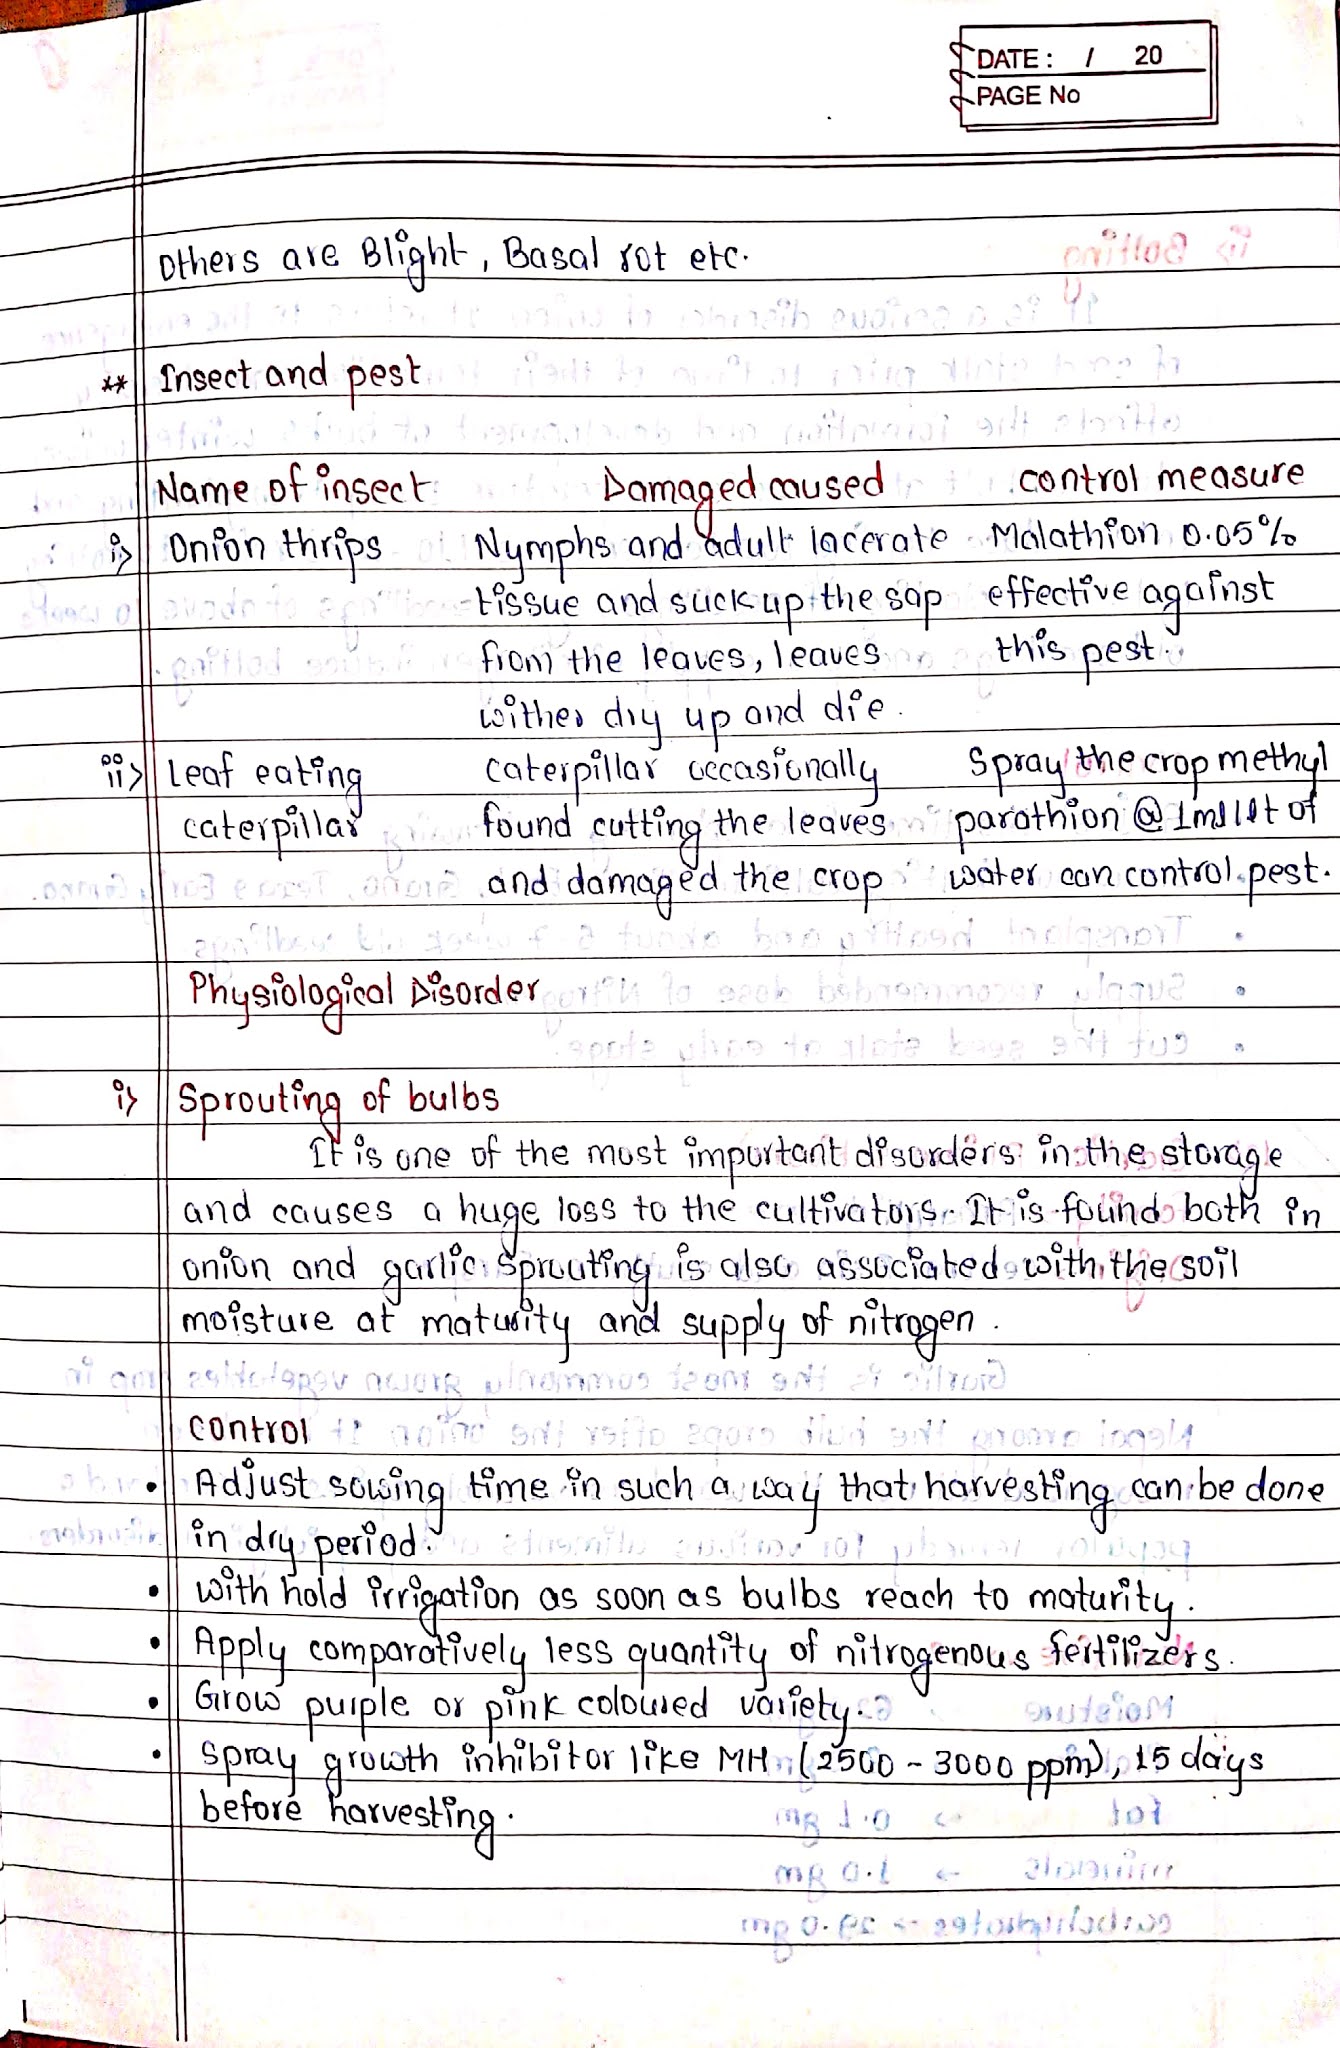 DATE : / 20
PAGE No
Others are Blight, Basal rot etc.
** Insect and pest
Name of insect Damaged caused control measure
i> Onion thrips Nymphs and adult lacerate Malathion 0.05%
tissue and suck up the sap effective against
from the leaves, leaves this pest.
wither dry up and die.
ii> Leaf eating caterpillar occasionally Spray the crop methyl
caterpillar found cutting the leaves parathion @ 1ml lit of
and damaged the crop water can control pest.
Physiological Disorder
i> Sprouting of bulbs
It is one of the most important disorders in the storage
and causes a huge loss to the cultivators. It is found both in
onion and garlic. Sprouting is also associated with the soil
moisture at maturity and supply of nitrogen.
control
• Adjust sowing time in such a way that harvesting can be done
in dry period.
• with hold irrigation as soon as bulbs reach to maturity.
• Apply comparatively less quantity of nitrogenous fertilizers.
• Grow purple or pink coloured variety.
• spray growth inhibitor like MH (2500 - 3000 ppm), 15 days
before harvesting.